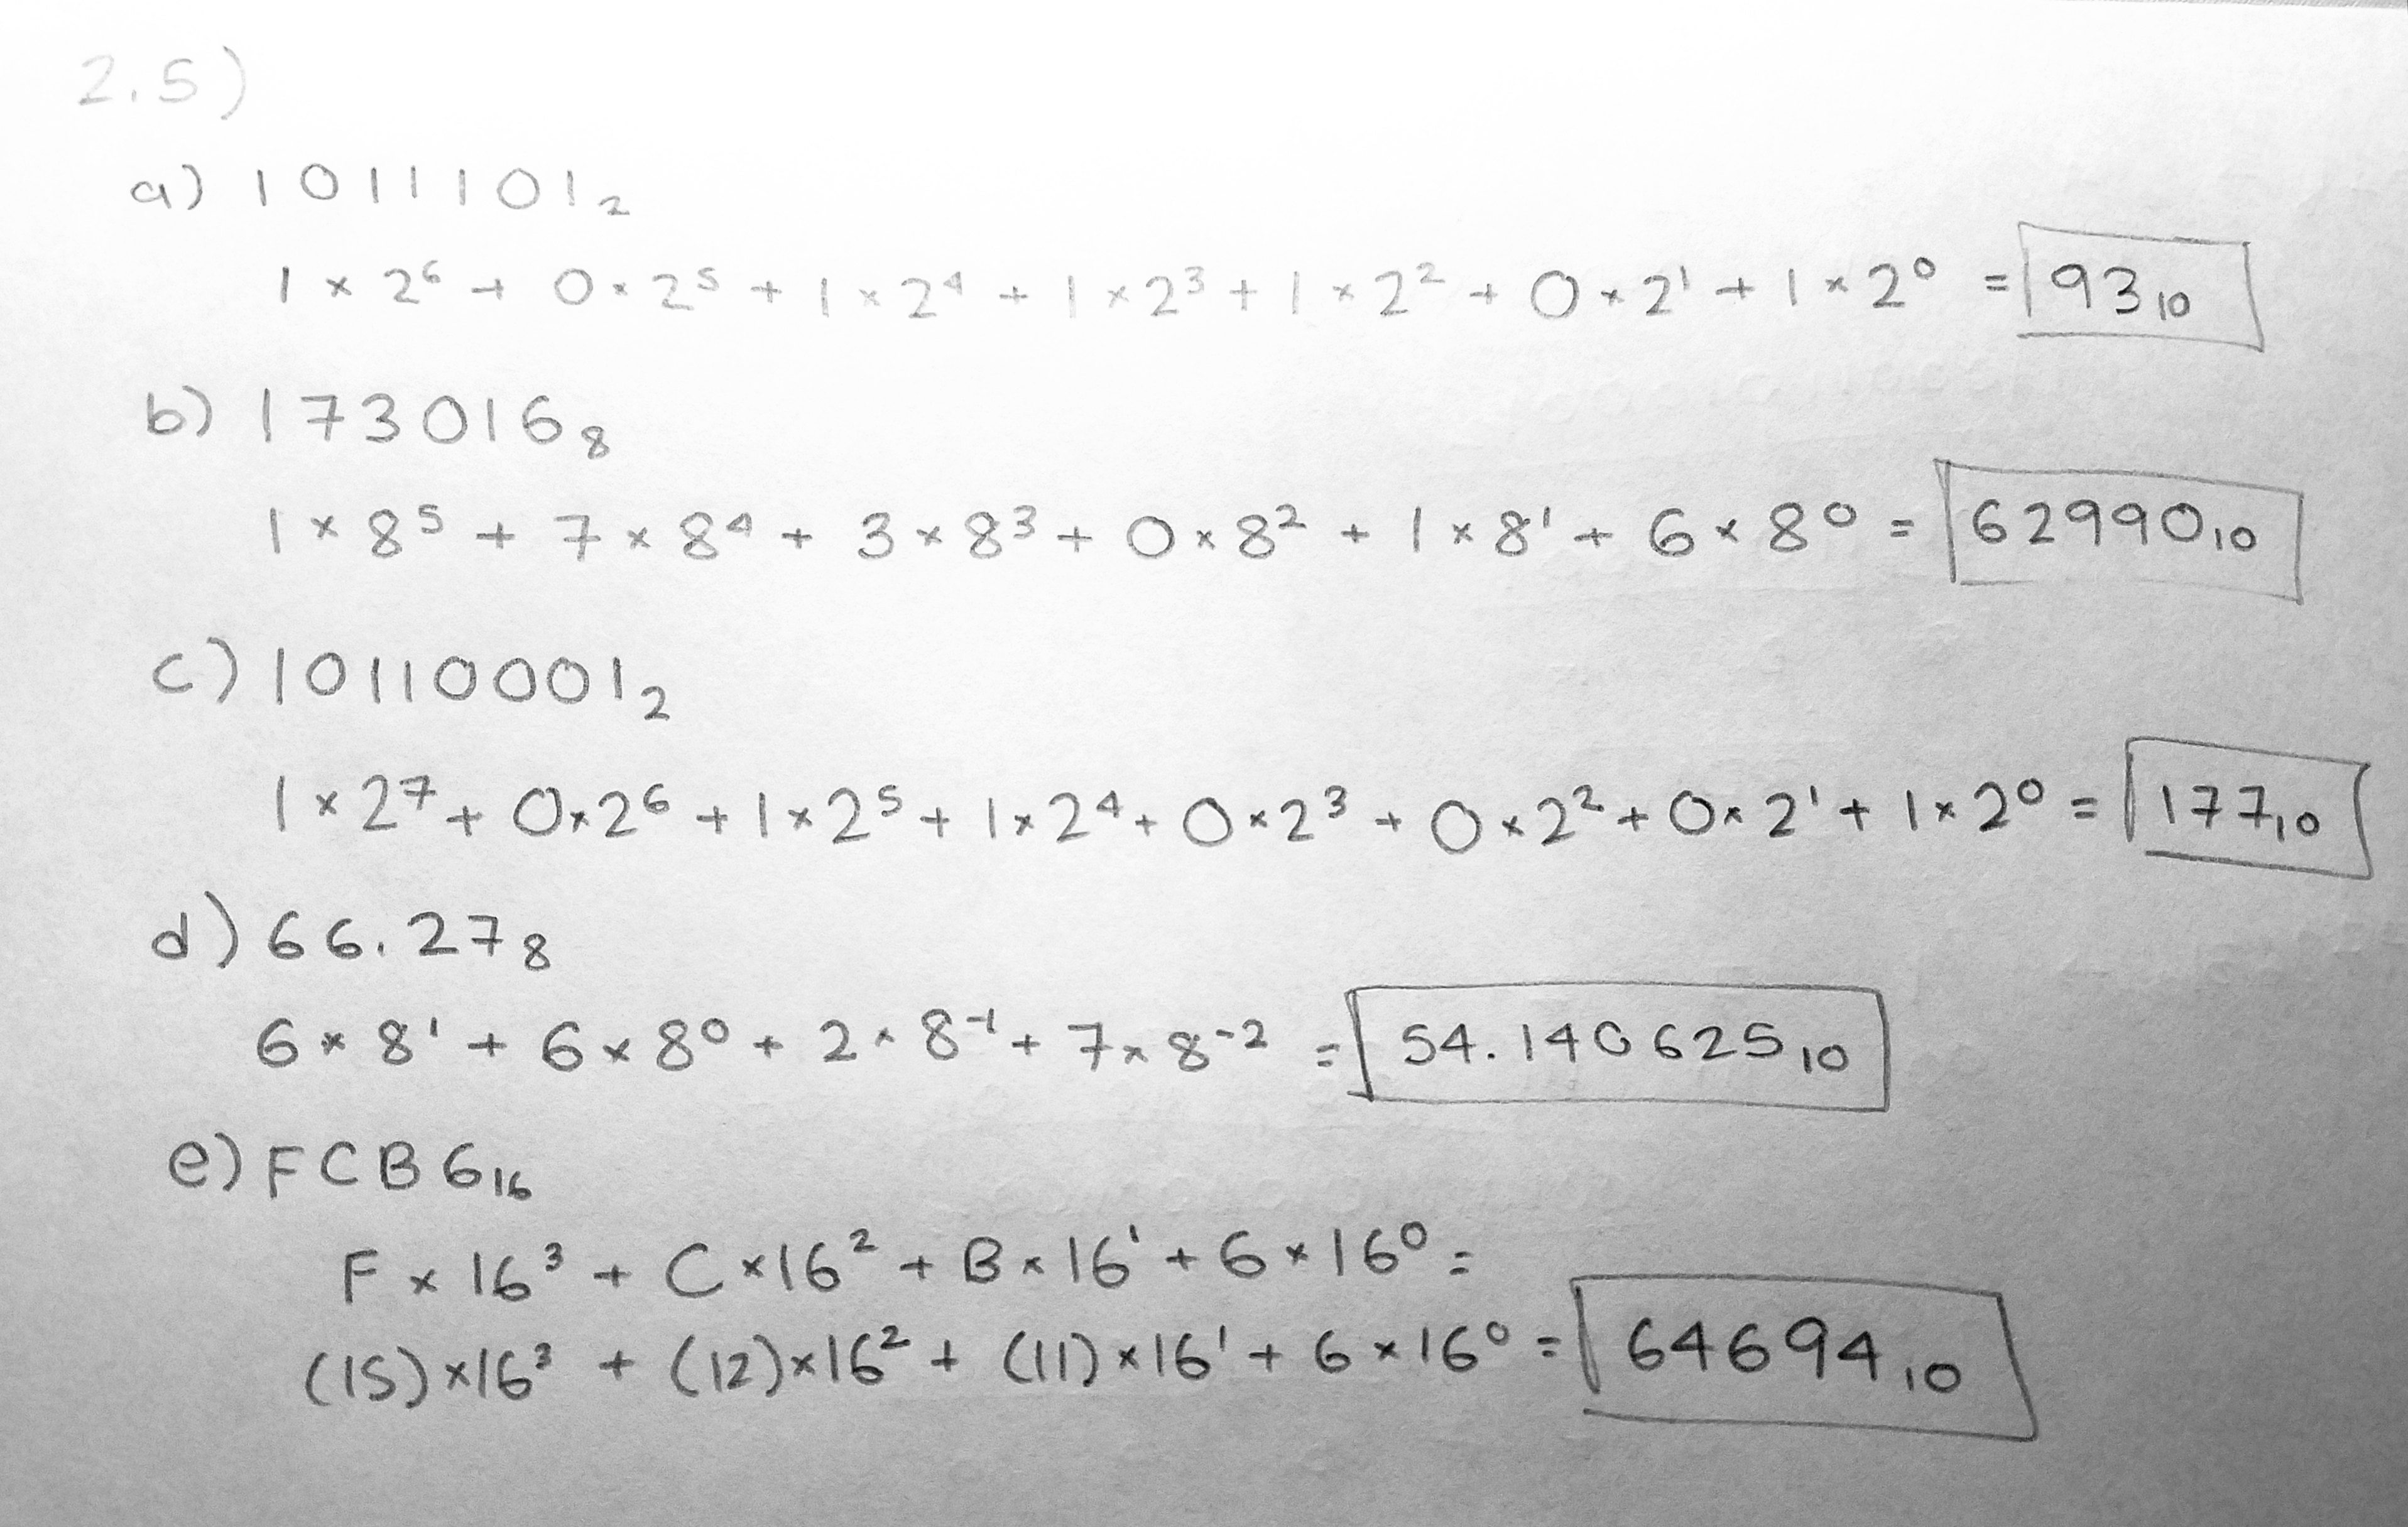 2.5)
a) 1011101₂
1 × 2⁶ + 0 × 2⁵ + 1 × 2⁴ + 1 × 2³ + 1 × 2² + 0 × 2¹ + 1 × 2⁰ = 93₁₀
b) 173016₈
1 × 8⁵ + 7 × 8⁴ + 3 × 8³ + 0 × 8² + 1 × 8¹ + 6 × 8⁰ = 62990₁₀
c) 10110001₂
1 × 2⁷ + 0 × 2⁶ + 1 × 2⁵ + 1 × 2⁴ + 0 × 2³ + 0 × 2² + 0 × 2¹ + 1 × 2⁰ = 177₁₀
d) 66.27₈
6 × 8¹ + 6 × 8⁰ + 2 × 8⁻¹ + 7 × 8⁻² = 54.140625₁₀
e) FCB6₁₆
F × 16³ + C × 16² + B × 16¹ + 6 × 16⁰ =
(15) × 16³ + (12) × 16² + (11) × 16¹ + 6 × 16⁰ = 64694₁₀